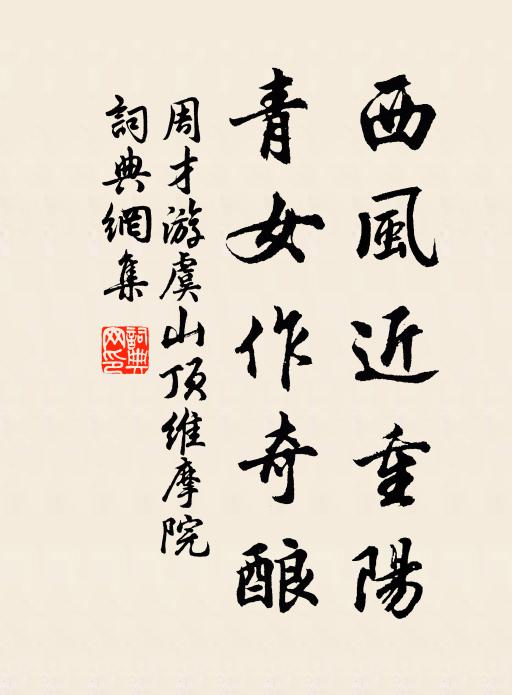 西風近重陽
青女作奇酿
周才游虞山頂維摩院
詞典網集
詞典網印